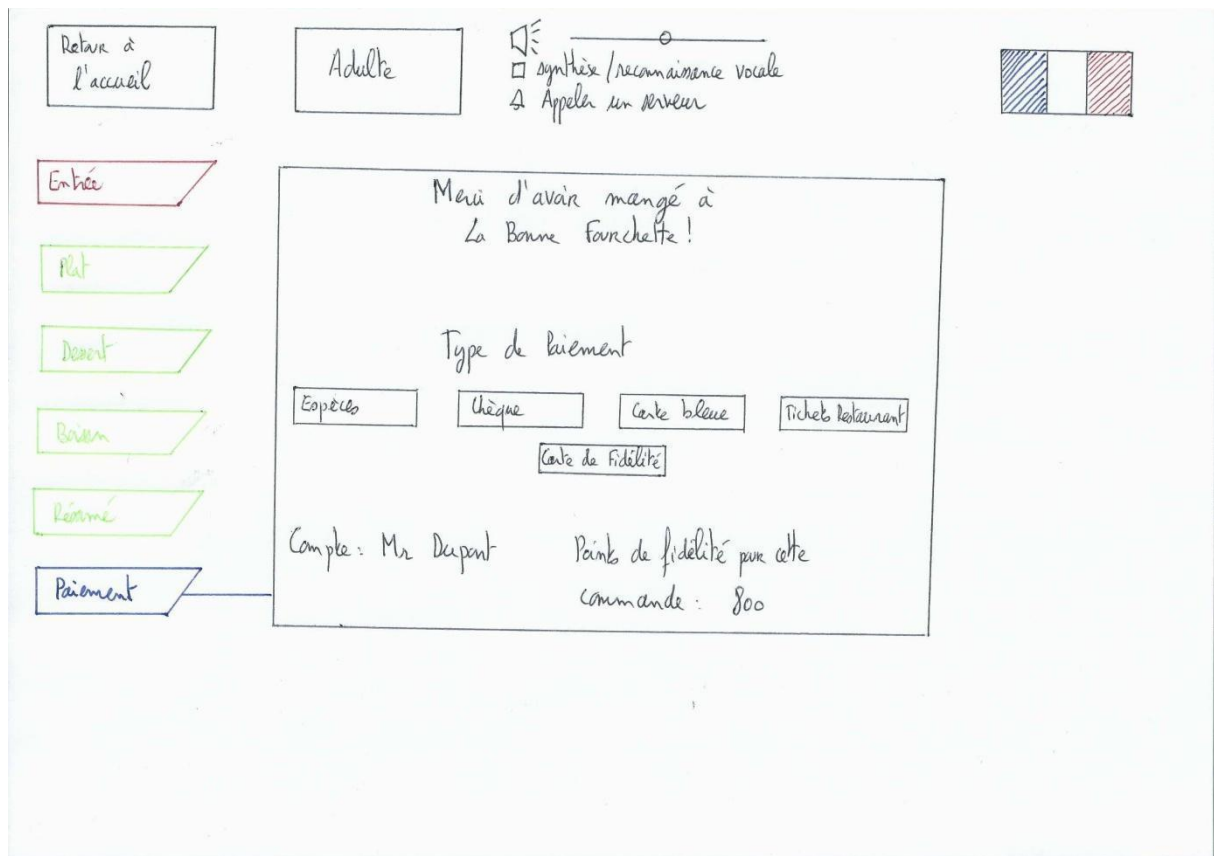 Retour à
l'accueil
Adulte
synthèse/reconnaissance vocale
Appeler un serveur
Entrée
Plat
Dessert
Boisson
Résumé
Paiement
Merci d'avoir mangé à
La Bonne Fourchette !
Type de Paiement
Espèces
Chèque
Carte bleue
Tickets Restaurant
Carte de Fidélité
Compte : Mr Dupont
Points de fidélité pour cette
commande : 800